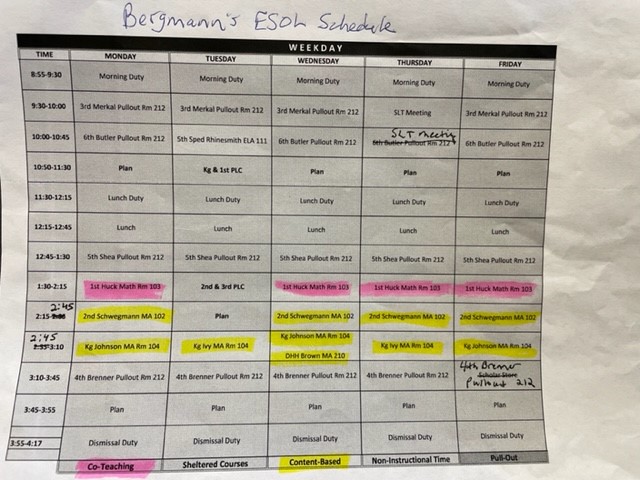 Bergmann's ESOL Schedule
WEEKDAY
TIME MONDAY TUESDAY WEDNESDAY THURSDAY FRIDAY
8:55-9:30 Morning Duty Morning Duty Morning Duty Morning Duty Morning Duty
9:30-10:00 3rd Merkal Pullout Rm 212 3rd Merkal Pullout Rm 212 3rd Merkal Pullout Rm 212 SLT Meeting 3rd Merkal Pullout Rm 212
SLT meeting
10:00-10:45 6th Butler Pullout Rm 212 5th Sped Rhinesmith ELA 111 6th Butler Pullout Rm 212 6th Butler Pullout Rm 212 6th Butler Pullout Rm 212
10:50-11:30 Plan Kg & 1st PLC Plan Plan Plan
11:30-12:15 Lunch Duty Lunch Duty Lunch Duty Lunch Duty Lunch Duty
12:15-12:45 Lunch Lunch Lunch Lunch Lunch
12:45-1:30 5th Shea Pullout Rm 212 5th Shea Pullout Rm 212 5th Shea Pullout Rm 212 5th Shea Pullout Rm 212 5th Shea Pullout Rm 212
1:30-2:15 1st Huck Math Rm 103 2nd & 3rd PLC 1st Huck Math Rm 103 1st Huck Math Rm 103 1st Huck Math Rm 103
2:45
2:15- 2nd Schwegmann MA 102 Plan 2nd Schwegmann MA 102 2nd Schwegmann MA 102 2nd Schwegmann MA 102
2:45
2:35-3:10 Kg Johnson MA Rm 104 Kg Ivy MA Rm 104 Kg Johnson MA Rm 104 Kg Ivy MA Rm 104 Kg Johnson MA Rm 104
DHH Brown MA 210
4th Brenner
3:10-3:45 4th Brenner Pullout Rm 212 4th Brenner Pullout Rm 212 4th Brenner Pullout Rm 212 4th Brenner Pullout Rm 212 Scholar Store
Pullout 212
3:45-3:55 Plan Plan Plan Plan Plan
3:55-4:17 Dismissal Duty Dismissal Duty Dismissal Duty Dismissal Duty Dismissal Duty
Co-Teaching Sheltered Courses Content-Based Non-Instructional Time Pull-Out